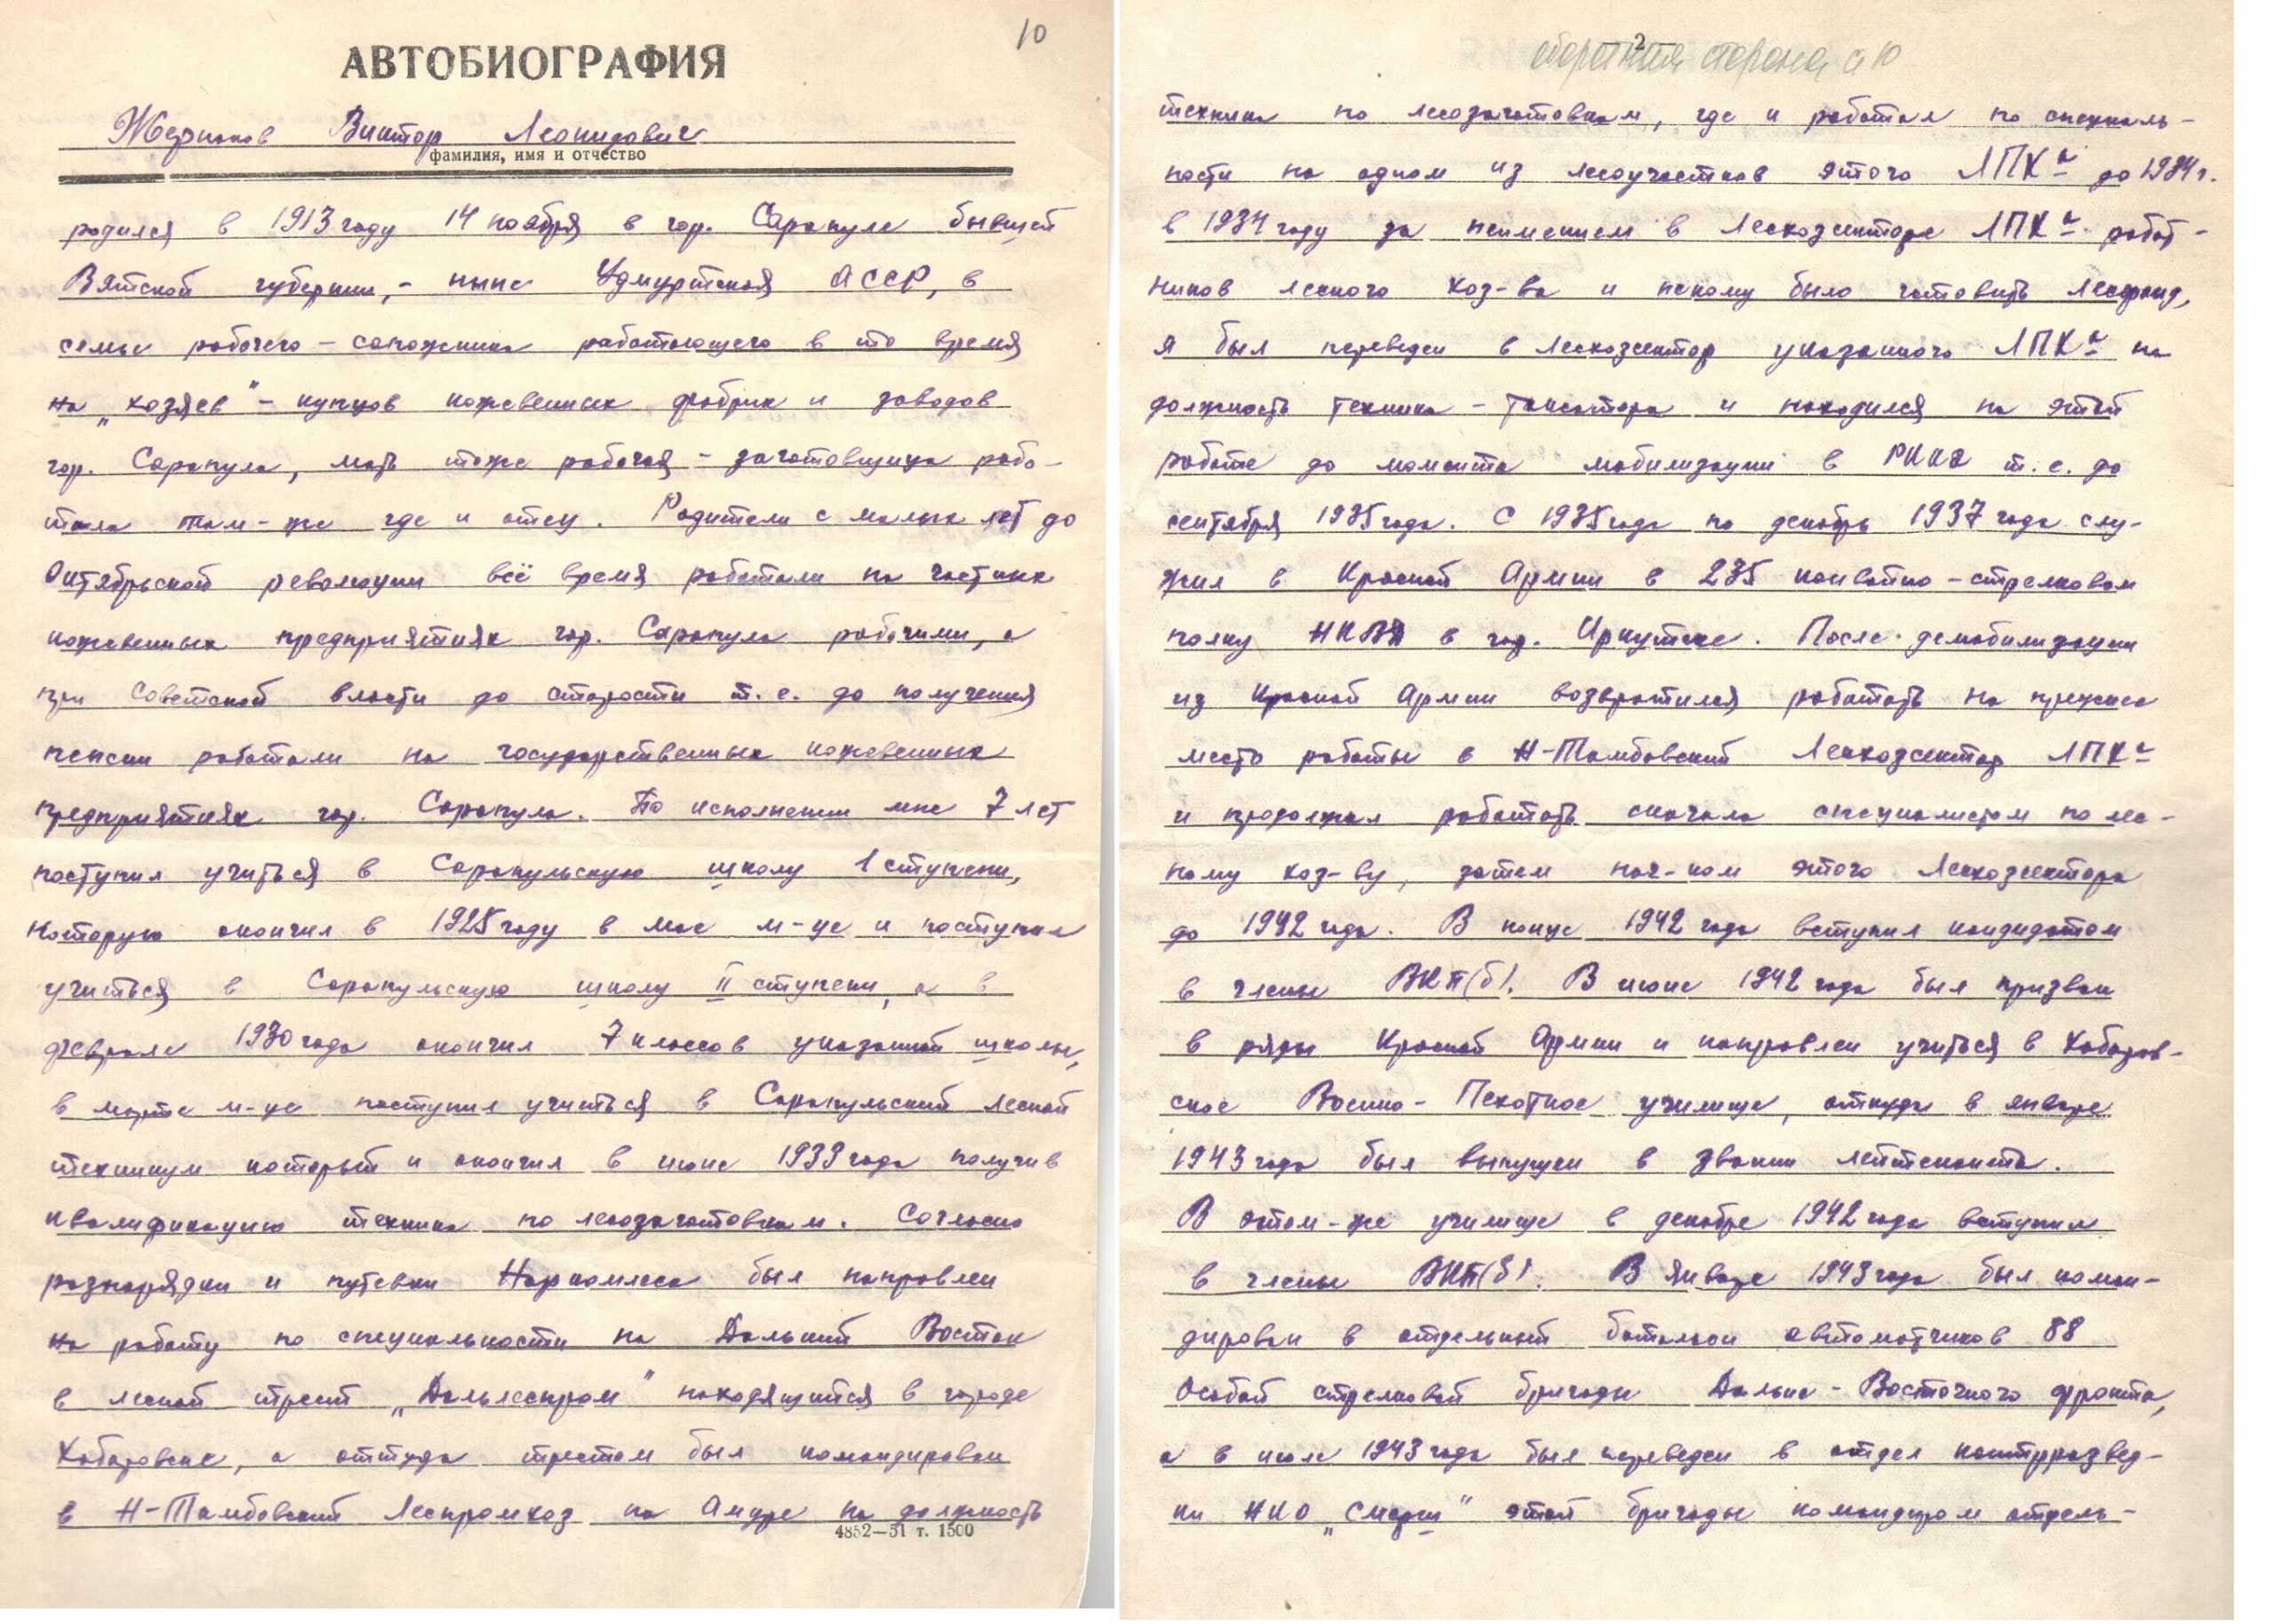 10
АВТОБИОГРАФИЯ
Жерноков Виктор Леонидович
фамилия, имя и отчество
родился в 1913 году 14 ноября в гор. Сарапуле бывшей
Вятской губернии, - ныне Удмуртская АССР, в
семье рабочего - сапожника работающего в то время
на „хозяев" - купцов кожевенных фабрик и заводов
гор. Сарапула, мать тоже рабочая - заготовщица рабо-
тала там-же где и отец. Родители с малых лет до
Октябрьской революции всё время работали на частных
кожевенных предприятиях гор. Сарапула рабочими, а
при Советской власти до старости т.е. до получения
пенсии работали на государственных кожевенных
предприятиях гор. Сарапула. По исполнении мне 7 лет
поступил учиться в Сарапульскую школу 1 ступени,
которую окончил в 1925 году в мае м-це и поступил
учиться в Сарапульскую школу II ступени, а в
феврале 1930 года окончил 7 классов указанной школы,
в марте м-це поступил учиться в Сарапульский лесной
техникум который и окончил в июне 1933 года получив
квалификацию техника по лесозаготовкам. Согласно
разнарядки и путевки Наркомлеса был направлен
на работу по специальности на Дальний Восток
в лесной трест „Дальлеспром" находящийся в городе
Хабаровске, а оттуда трестом был командирован
в Н-Тамбовский Леспромхоз на Амуре на должность
4852—51 т. 1500
2
оборотная сторона л 10
техника по лесозаготовкам, где и работал по специаль-
ности на одном из лесоучастков этого ЛПХа до 1934 г.
в 1934 году за неимением в Лесхозсекторе ЛПХа работ-
ников лесного хоз-ва и некому было готовить лесфонд,
я был переведен в Лесхозсектор указанного ЛПХа на
должность техника - таксатора и находился на этой
работе до момента мобилизации в РККА т.е. до
сентября 1935 года. С 1935 года по декабрь 1937 года слу-
жил в Красной Армии в 235 конвойно - стрелковом
полку НКВД в гор. Иркутске. После демобилизации
из Красной Армии возвратился работать на прежнее
место работы в Н-Тамбовский Лесхозсектор ЛПХа
и продолжал работать сначала специалистом по лес-
ному хоз-ву, затем нач-ком этого Лесхозсектора
до 1942 года. В конце 1942 года вступил кандидатом
в члены ВКП(б). В июне 1942 года был призван
в ряды Красной Армии и направлен учиться в Хабаров-
ское Военно - Пехотное училище, откуда в январе
1943 года был выпущен в звании лейтенанта.
В этом-же училище в декабре 1942 года вступил
в члены ВКП(б). В январе 1943 года был коман-
дирован в отдельный батальон автоматчиков 88
Особой стрелковой бригады Дальне - Восточного фронта,
а в июле 1943 года был переведен в отдел контрразвед-
ки НКО „Смерш" этой бригады командиром отдель-